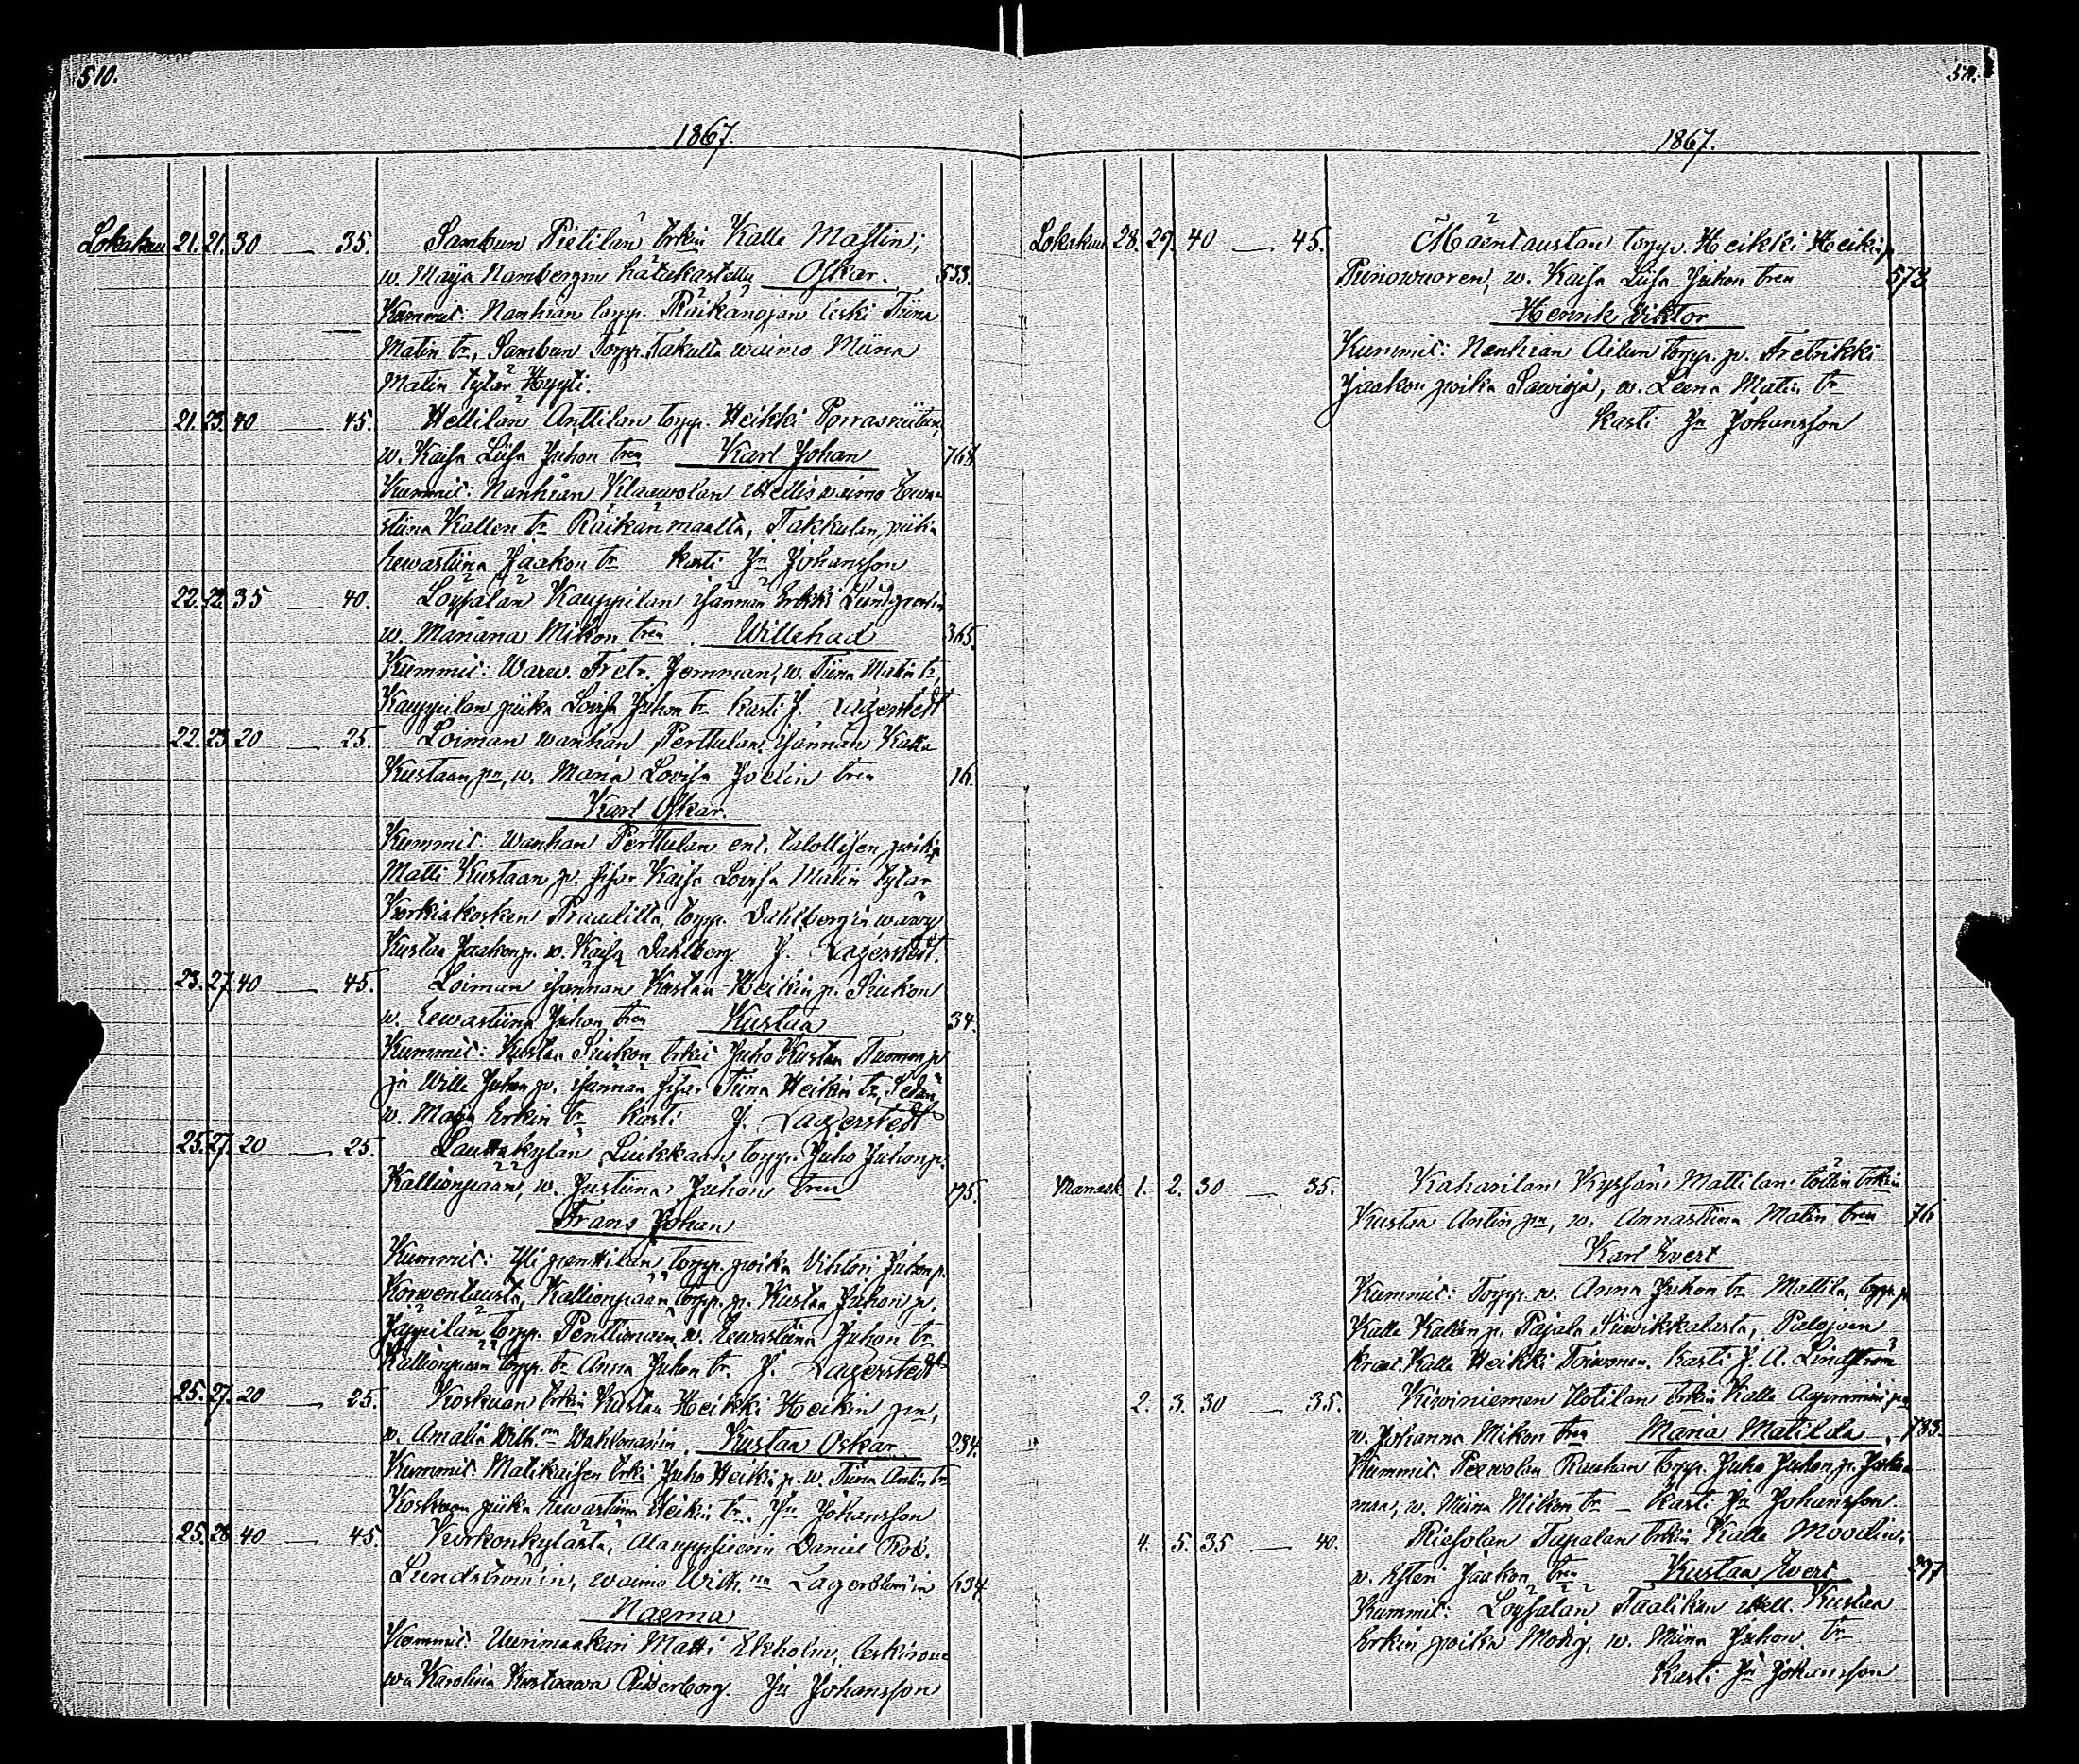 510.
1867.
Lokakuu 21. 21. 30 — 35. Sambun Pietilän trkin Kalle Mastin;
w. Maija Nambergin hätäkastettu Oskar. 533.
Kummit: Nanhian torpp. Räikänojan leski Tiina
Matin tr, Sambun torpp. Takulta waimo Miina
Matin tytär Hyyti.
21. 23. 40 — 45. Hellilän Anttilan torpp. Heikki
w. Kaisa Liisa Juhon tren Karl Johan 768
Kummit: Nanhian waimo Eewa
stiina Kallen tr Räikänmaalta, Takkulan piika
Eewastiina Jaakon tr kasti Jn Johansson
22. 22. 35 — 40. Loysälän Kauppilan isännän Erkki
w. Mariana Mikon tren Willehad 365.
Kummit: Warw. Fretr. w. Tiina Matin tr,
Kauppilan piika Lovisa Juhon tr kasti J. Lagerstedt
22. 23. 20 — 25. Loiman wanhan Perttulan isännän Kalle
Kustaan pn, w. Maria Lovisa Joelin tren 16.
Karl Oskar.
Kummit: Wanhan Perttulan ent. talollisen poika
Matti Kustaan p. sisar Kaisa Lovisa Matin tytär
Korkiakosken torpp. Dahlbergin
Kustaa Jaakon p. w. Kaisa Dahlberg. J. Lagerstedt.
23. 27. 40 — 45. Loiman isännän Kustaa Heikin p. Siukon
w. Eewastiina Juhon tren Kustaa 34.
Kummit: Kustaa Siukon trkit Juho Kustaa Tuomon p
ja Wille Juhon p. isännän sisar Tiina Heikin tr,
w. Maija Erkin tr kasti J. Lagerstedt
25. 27. 20 — 25. Lauttakylän Liukkaan torpp. Juho Juhon p.
Kallionpään, w. Justiina Juhon tren 195.
Frans Johan
Kummit: Yli penttilän torpp. poika Vihtori Juhon p.
Korwentausta, Kallionpään torpp. p. Kustaa Juhon p.
Jäppilän torpp. w. Eewastiina Juhon tr
Kallionpään torpp. tr Anna Juhon tr. J. Lagerstedt
25. 27. 20 — 25. Koskuan trkin Kustaa Heikki Heikin pn,
w. Amalia Wilh.nn Wahlmanin. Kustaa Oskar. 234.
Kummit: trki Juho Heikin p. w. Tiina Antin tr
Koskuan piika Eewastiina Heikin tr. Jn Johansson
25. 28. 40 — 45. Kurkonkylästä, Alauppsieerin Daniel Rob.
Lundströmin, waimo Wilh.nn Lagerblomin 634
Naema
Kummit: Uurimaakari Matti Ekholm, leskirou
wa Karolina Kustaawa Riderborg. Jn Johansson
511.
1867.
Lokakuu 28. 29. 40 — 45. Mäentaustan torpp. Heikki Heikin p
w. Kaisa Liisa Juhon tren 573
Henrik Viktor
Kummit: Nanhian Ailun torpp. p. Fretrikki
Jaakon poika Sawioja, w. Leena Matin tr
kasti Jn Johansson
Marrask. 1. 2. 30 — 35. Kaharilan Mattilan trkin
Kustaa Antin pn, w. Annastiina Matin tren 76
Karl Evert
Kummit: Torpp. w. Anna Juhon tr Mattila, torpp. p
Kalle Kallen p. Pajala Palojoen
Kalle Heikki Toiwonen. kasti J. A. Lindström
2. 3. 30 — 35. Kiwiniemen Uotilan trkin Kalle
w. Johanna Mikon tren Maria Matilda. 783.
Kummit: Peewolan Rauhan torpp. Juho Juhon p.
maa, w. Miina Mikon tr — kasti Jn Johansson.
4. 5. 35 — 40. Riesolan Tapalan trkin Kalle
w. Esteri Jaakon tren Kustaa Evert 297
Kummit: Loysälän Kustaa
Erkin poika w. Miina Juhon tr
kasti Jn Johansson